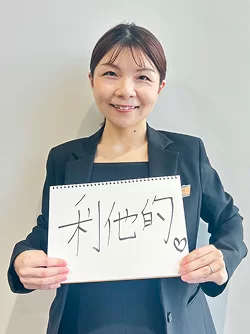 利他的